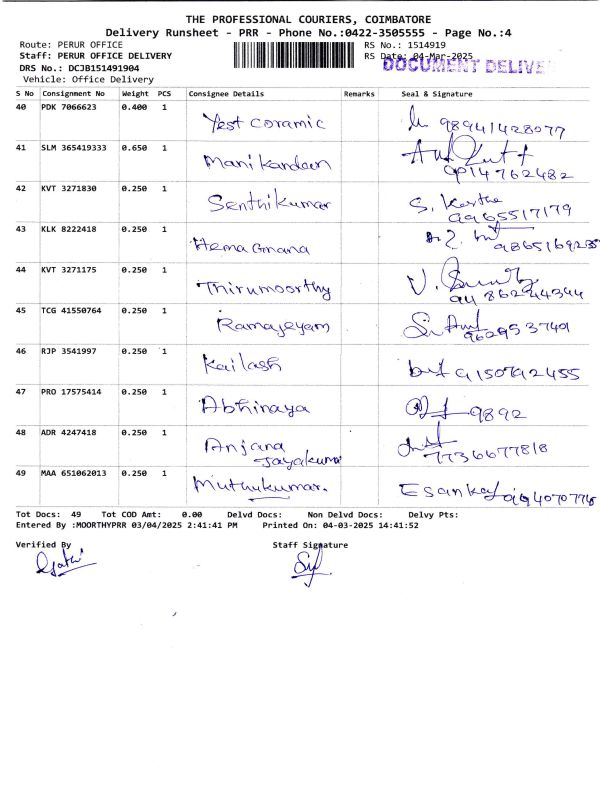 THE PROFESSIONAL COURIERS, COIMBATORE
Delivery Runsheet - PRR - Phone No.:0422-3505555 - Page No.:4
Route: PERUR OFFICE
RS No.: 1514919
Staff: PERUR OFFICE DELIVERY
RS Date: 04-Mar-2025
DOCUMENT DELIVE
DRS No.: DCJB151491904
Vehicle: Office Delivery
S No Consignment No Weight PCS Consignee Details Remarks Seal & Signature
40 PDK 7066623 0.400 1 Yest Coramic
41 SLM 365419333 0.650 1 Manikandan
42 KVT 3271830 0.250 1 Senthikumar S. Kartha
9965517179
43 KLK 8222418 0.250 1 Hema Gnana
44 KVT 3271175 0.250 1 Thirumoorthy
45 TCG 41550764 0.250 1 Ramajeyam
9629537401
46 RJP 3541997 0.250 1 Kailash
47 PRO 17575414 0.250 1 Abhinaya 9892
48 ADR 4247418 0.250 1 Anjana
Jayakumar
7736677818
49 MAA 651062013 0.250 1 Muthukumar.
Tot Docs: 49 Tot COD Amt: 0.00 Delvd Docs: Non Delvd Docs: Delvy Pts:
Entered By :MOORTHYPRR 03/04/2025 2:41:41 PM Printed On: 04-03-2025 14:41:52
Verified By Staff Signature